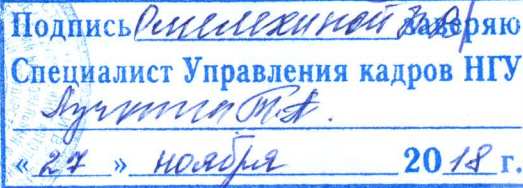 Подпись Смелехиной заверяю
Специалист Управления кадров НГУ
Т.А.
« 27 » ноября 2018 г.